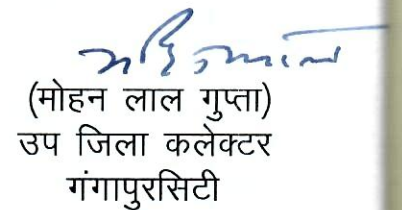 (मोहन लाल गुप्ता)
उप जिला कलेक्टर
गंगापुरसिटी